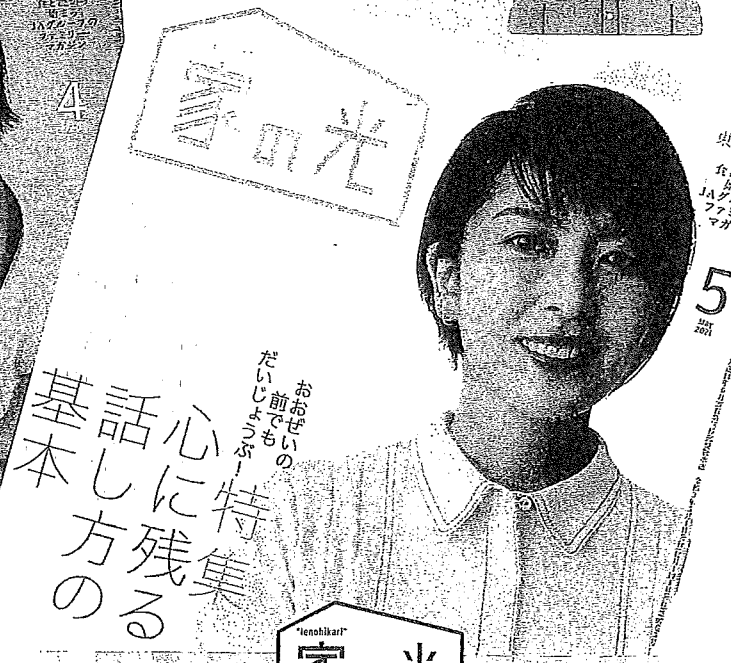 JAグループの
ファミリー
マガジン
4
家の光
5
MAY
2021
おおぜいの
前でも
だいじょうぶ!
特集
心に残る
話し方の
基本
"Ienohikari"
家 光